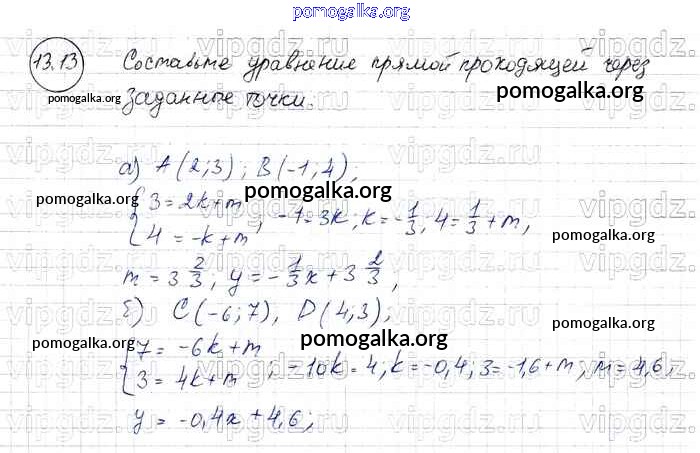 pomogalka.org
13.13 Составьте уравнение прямой проходящей через
заданные точки.
а) A(2;3); B(-1;4);
{3=2k+m
4=-k+m; -1=3k; k=-1/3; 4=1/3+m,
m=3 2/3; y=-1/3x+3 2/3,
б) C(-6;7), D(4;3),
{7=-6k+m
3=4k+m; -10k=4; k=-0,4; 3=-1,6+m; m=4,6,
y=-0,4x+4,6;
pomogalka.org
pomogalka.org
pomogalka.org
pomogalka.org
pomogalka.org
pomogalka.org
pomogalka.org
pomogalka.org
pomogalka.org